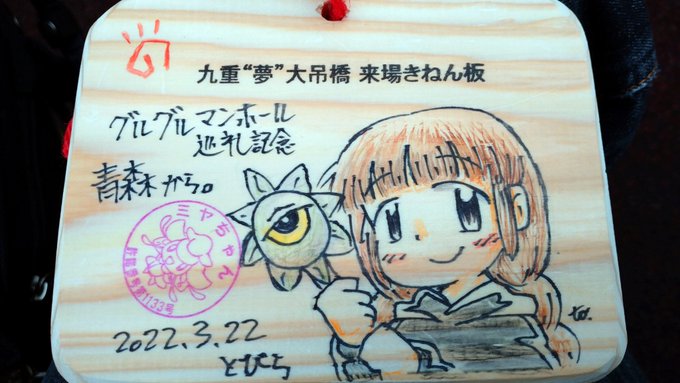 九重“夢”大吊橋 来場きねん板
グルグルマンホール
巡礼記念
青森から。
ミヤちゃん
第1133号
2022.3.22
とびら